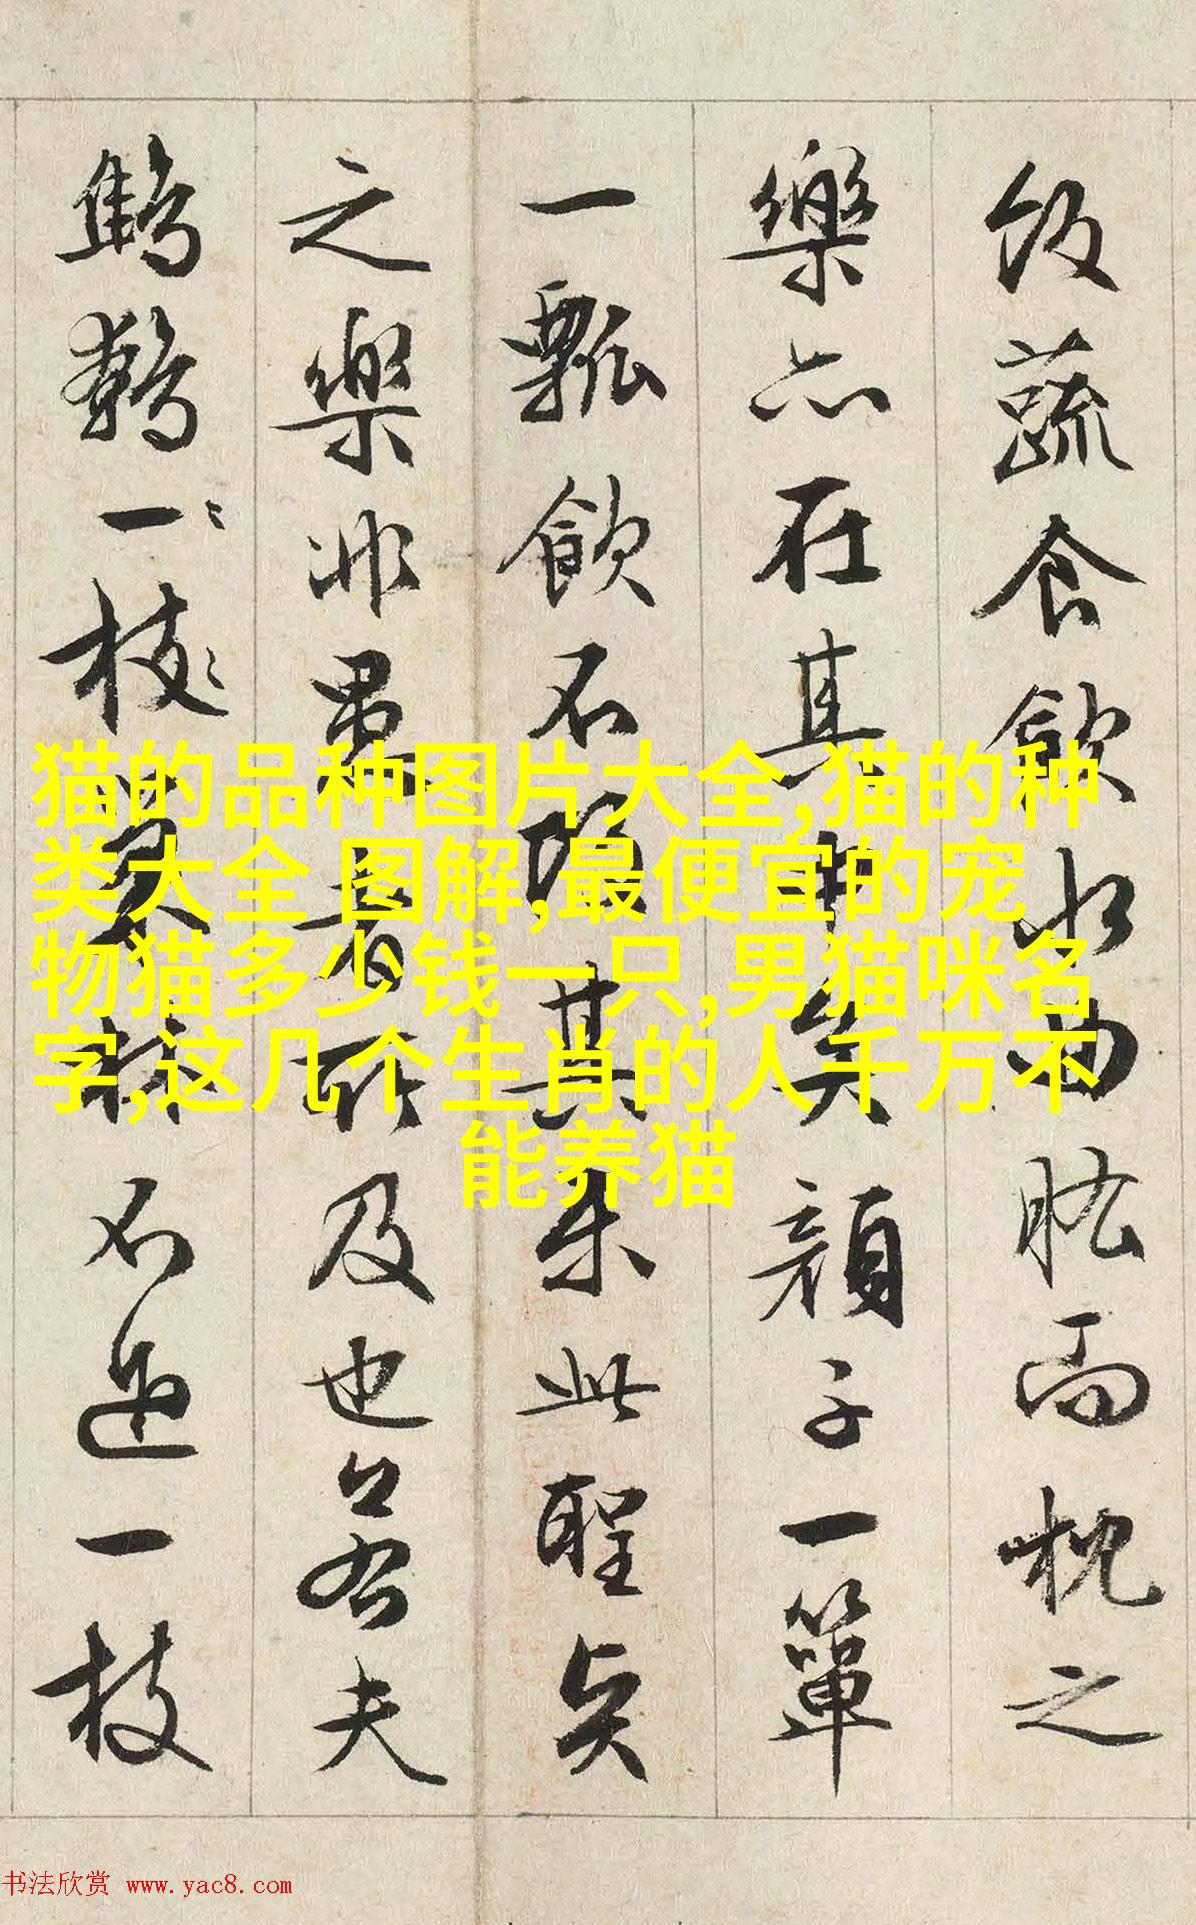 飯蔬食飲水曲肱而枕之
樂亦在其中矣顏子一簞
一瓢飲不改其樂此聖賢
之樂非愚者所及也若夫
鷦鷯一枝巢林不過一枝
猫的品种图片大全,猫的种
类大全 图解,最便宜的宠
物猫多少钱一只,男猫咪名
字,这几个生肖的人千万不
能养猫
书法欣赏 www.yac8.com